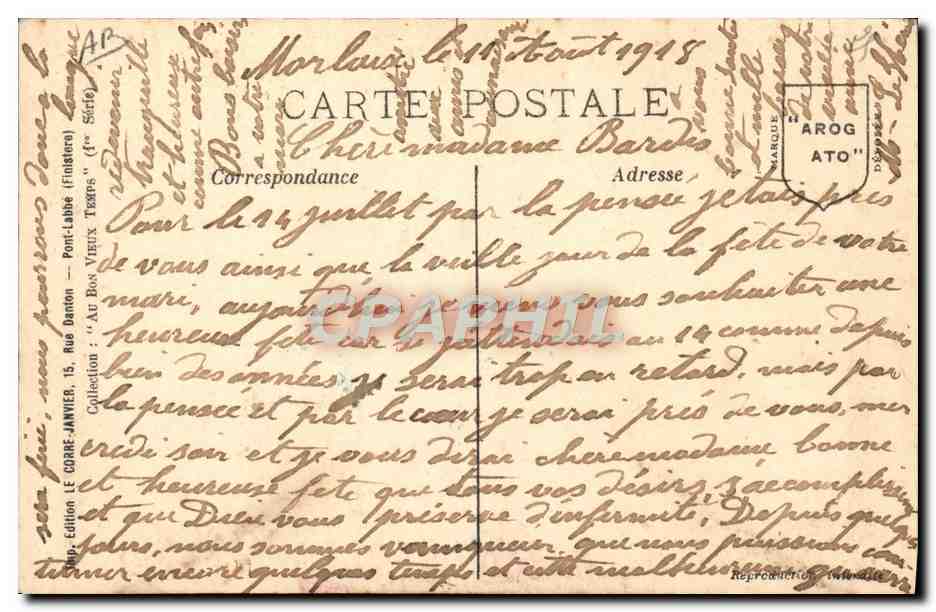 AB
Morlaix le 11 Août 1918
CARTE POSTALE
Chère madame Bardis
Correspondance
Adresse
MARQUE
"AROG
ATO"
DÉPOSÉE
Pour le 14 juillet par la pensée j'etais près
de vous ainsi que la veille jour de la fête de votre
mari, aujourd'hui je viens vous souhaiter une
heureuse fête car si j'attendais au 14 comme depuis
bien des années je serai trop en retard, mais par
la pensée et par le cœur je serai près de vous, mer
credi soir et je vous dirai chère madame bonne
et heureuse fête que tous vos désirs s'accomplissent
et que Dieu vous préserve d'infirmité, Depuis quelques
jours, nous sommes vainqueur, que nous puissions con
tinuer encore quelques temps et cette malheureuse guerre
sera fini, nous pourrons donc la
longue
redevenir
tranquille
et heureux
comme autrefois
Bons baisers
a votre
amitié
a vous
bonne santé
et mille
de votre
vieille
amie
Reproduction interdite
Imp. Edition LE CORRE-JANVIER, 15, Rue Danton — Pont-Labbé (Finistère)
Collection : "AU BON VIEUX TEMPS" (1re Série)
CPAPHIL